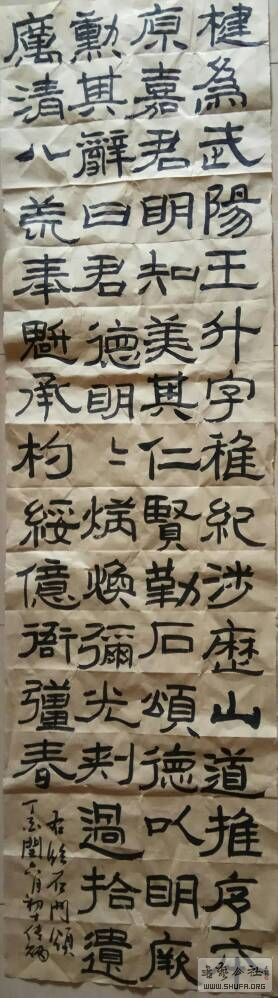 楗為武陽王升字稚紀涉歷山道推序本
原嘉君明知美其仁賢勒石頌德以明厥
勳其辭曰君德明明炳煥彌光刺過拾遺
厲清八荒奉魁承杓綏億衙彊春
右臨石門頌
丁酉閏六月初
书艺公社
WWW.SHUFA.ORG